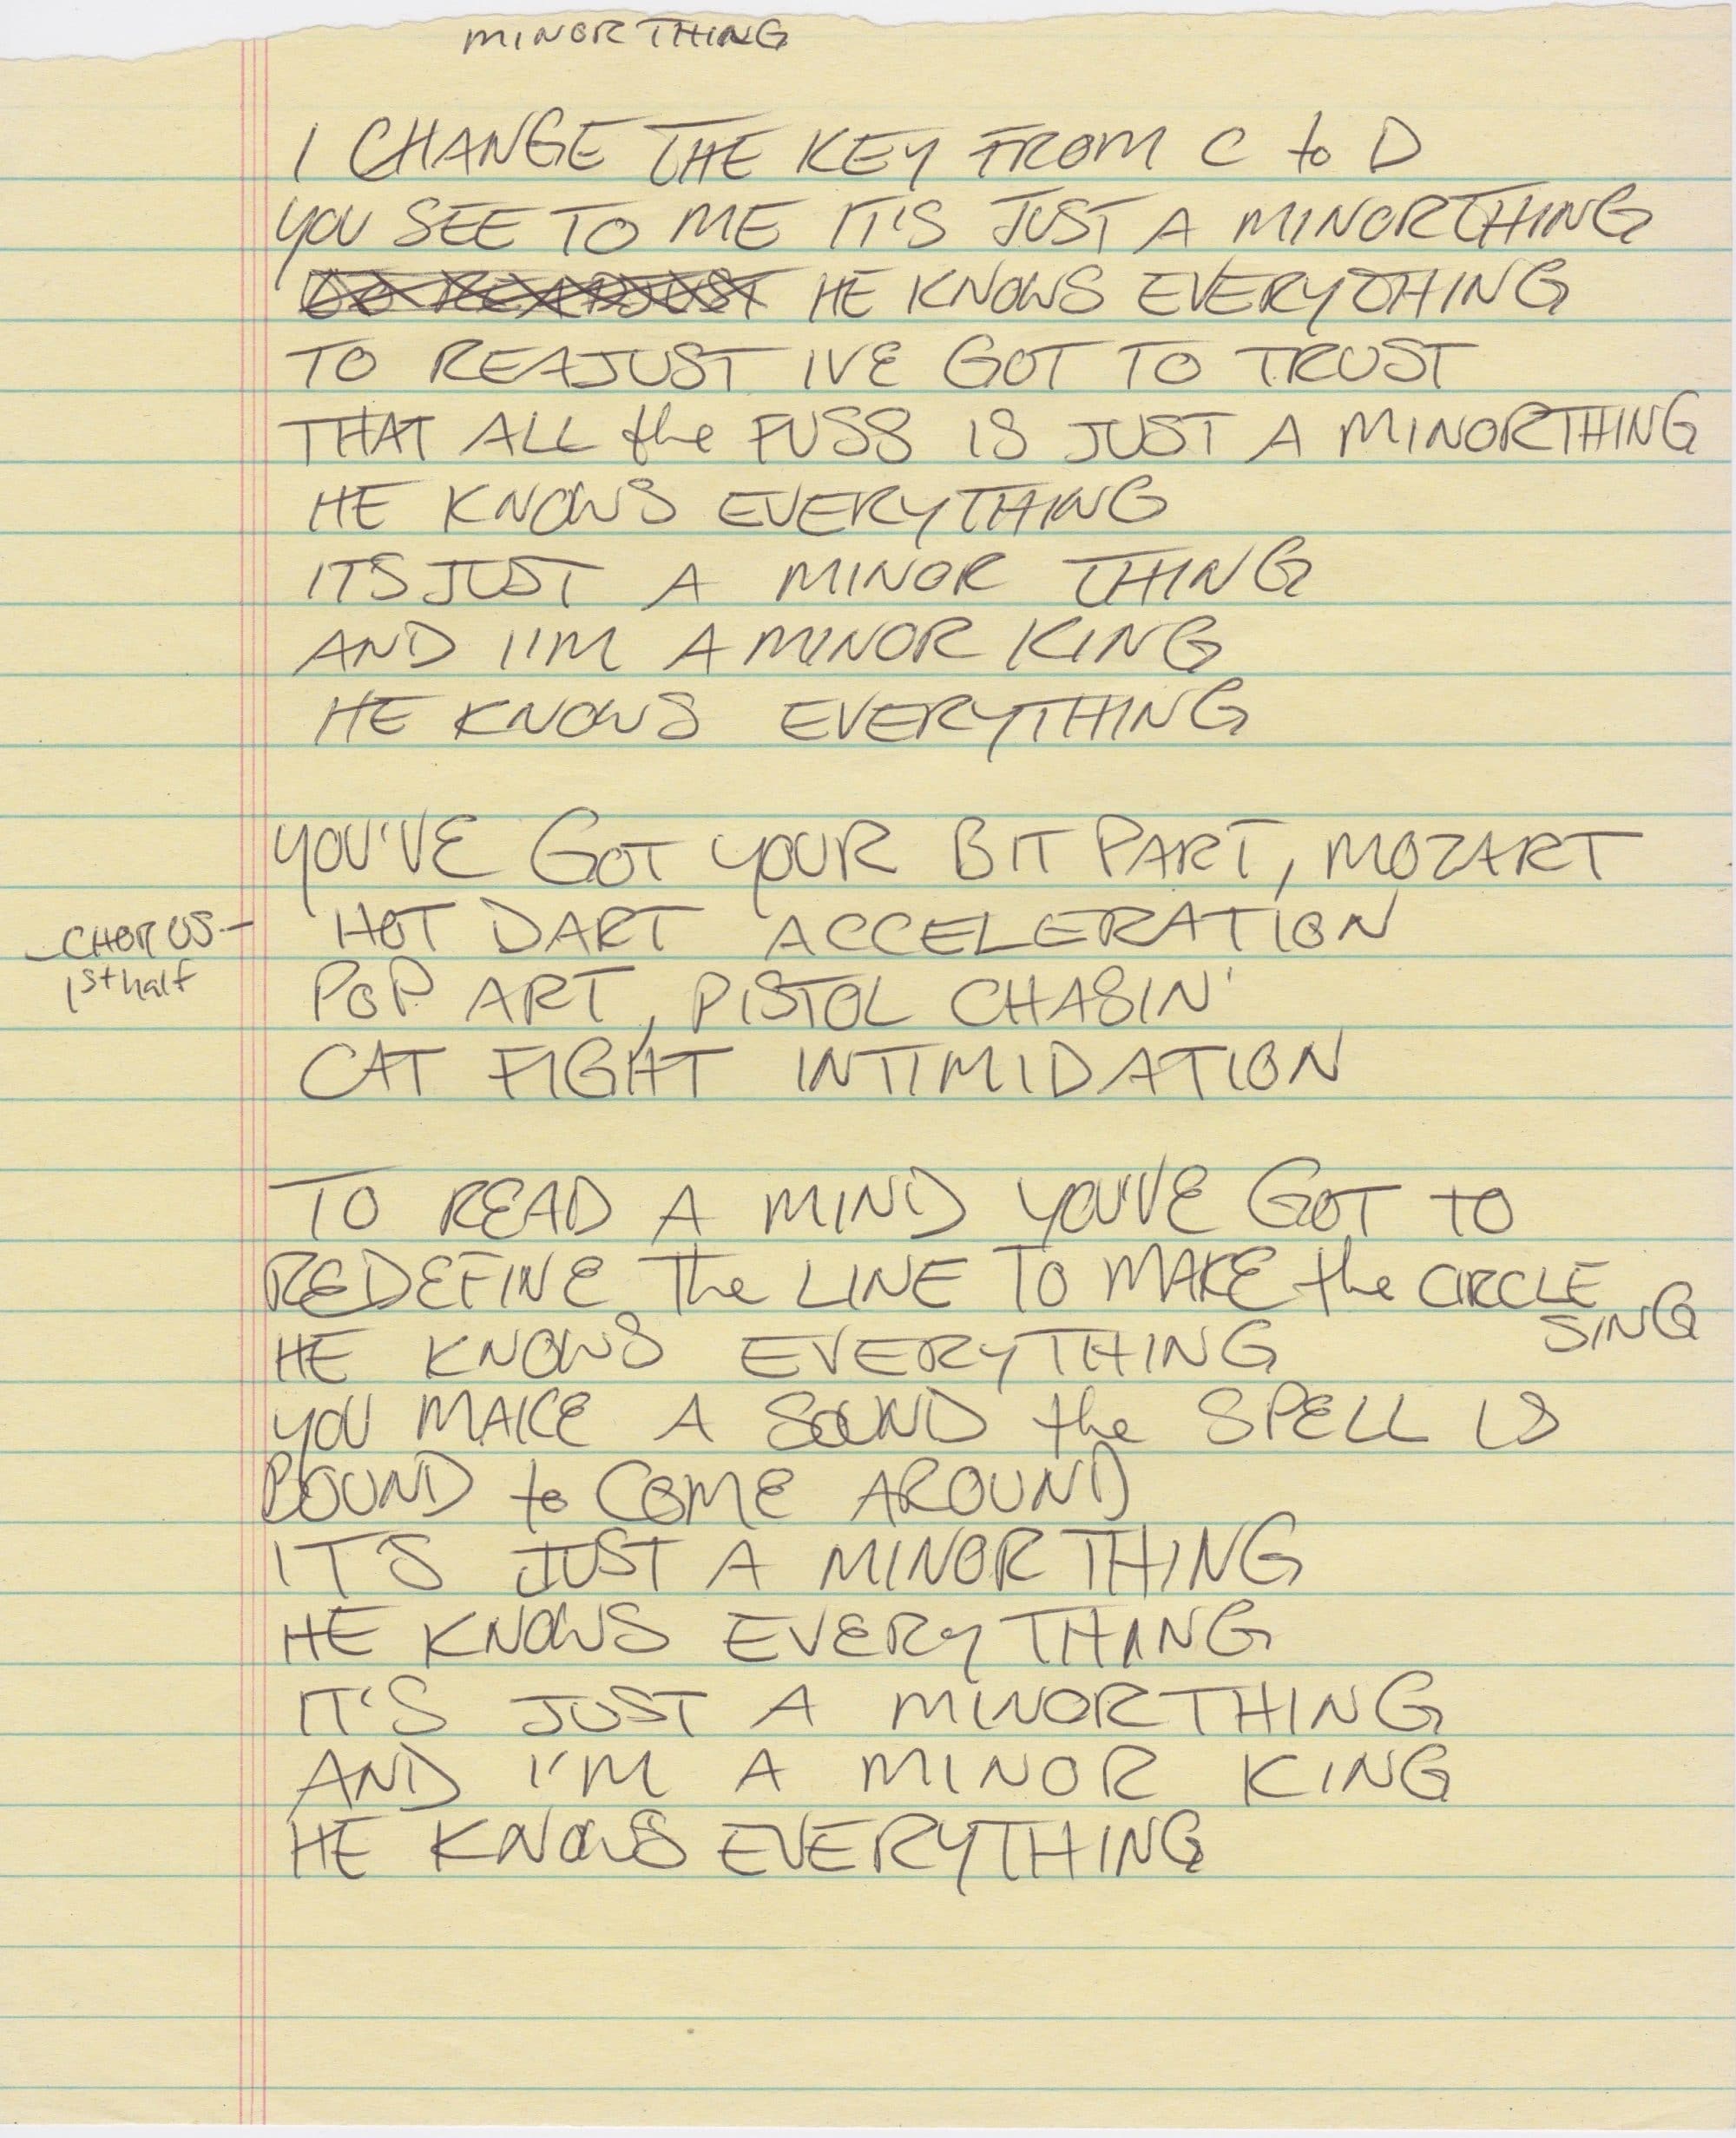 MINOR THING
I CHANGE THE KEY FROM C to D
YOU SEE TO ME IT'S JUST A MINOR THING
HE KNOWS EVERYTHING
TO REAJUST IVE GOT TO TRUST
THAT ALL the FUSS IS JUST A MINOR THING
HE KNOWS EVERYTHING
ITS JUST A MINOR THING
AND I'M A MINOR KING
HE KNOWS EVERYTHING
YOU'VE GOT YOUR BIT PART, MOZART
CHORUS - HOT DART ACCELERATION
1st half POP ART, PISTOL CHASIN'
CAT FIGHT INTIMIDATION
TO READ A MIND YOU'VE GOT TO
REDEFINE The LINE TO MAKE the CIRCLE
SING
HE KNOWS EVERYTHING
YOU MAKE A SOUND the SPELL IS
BOUND to COME AROUND
ITS JUST A MINOR THING
HE KNOWS EVERYTHING
IT'S JUST A MINOR THING
AND I'M A MINOR KING
HE KNOWS EVERYTHING